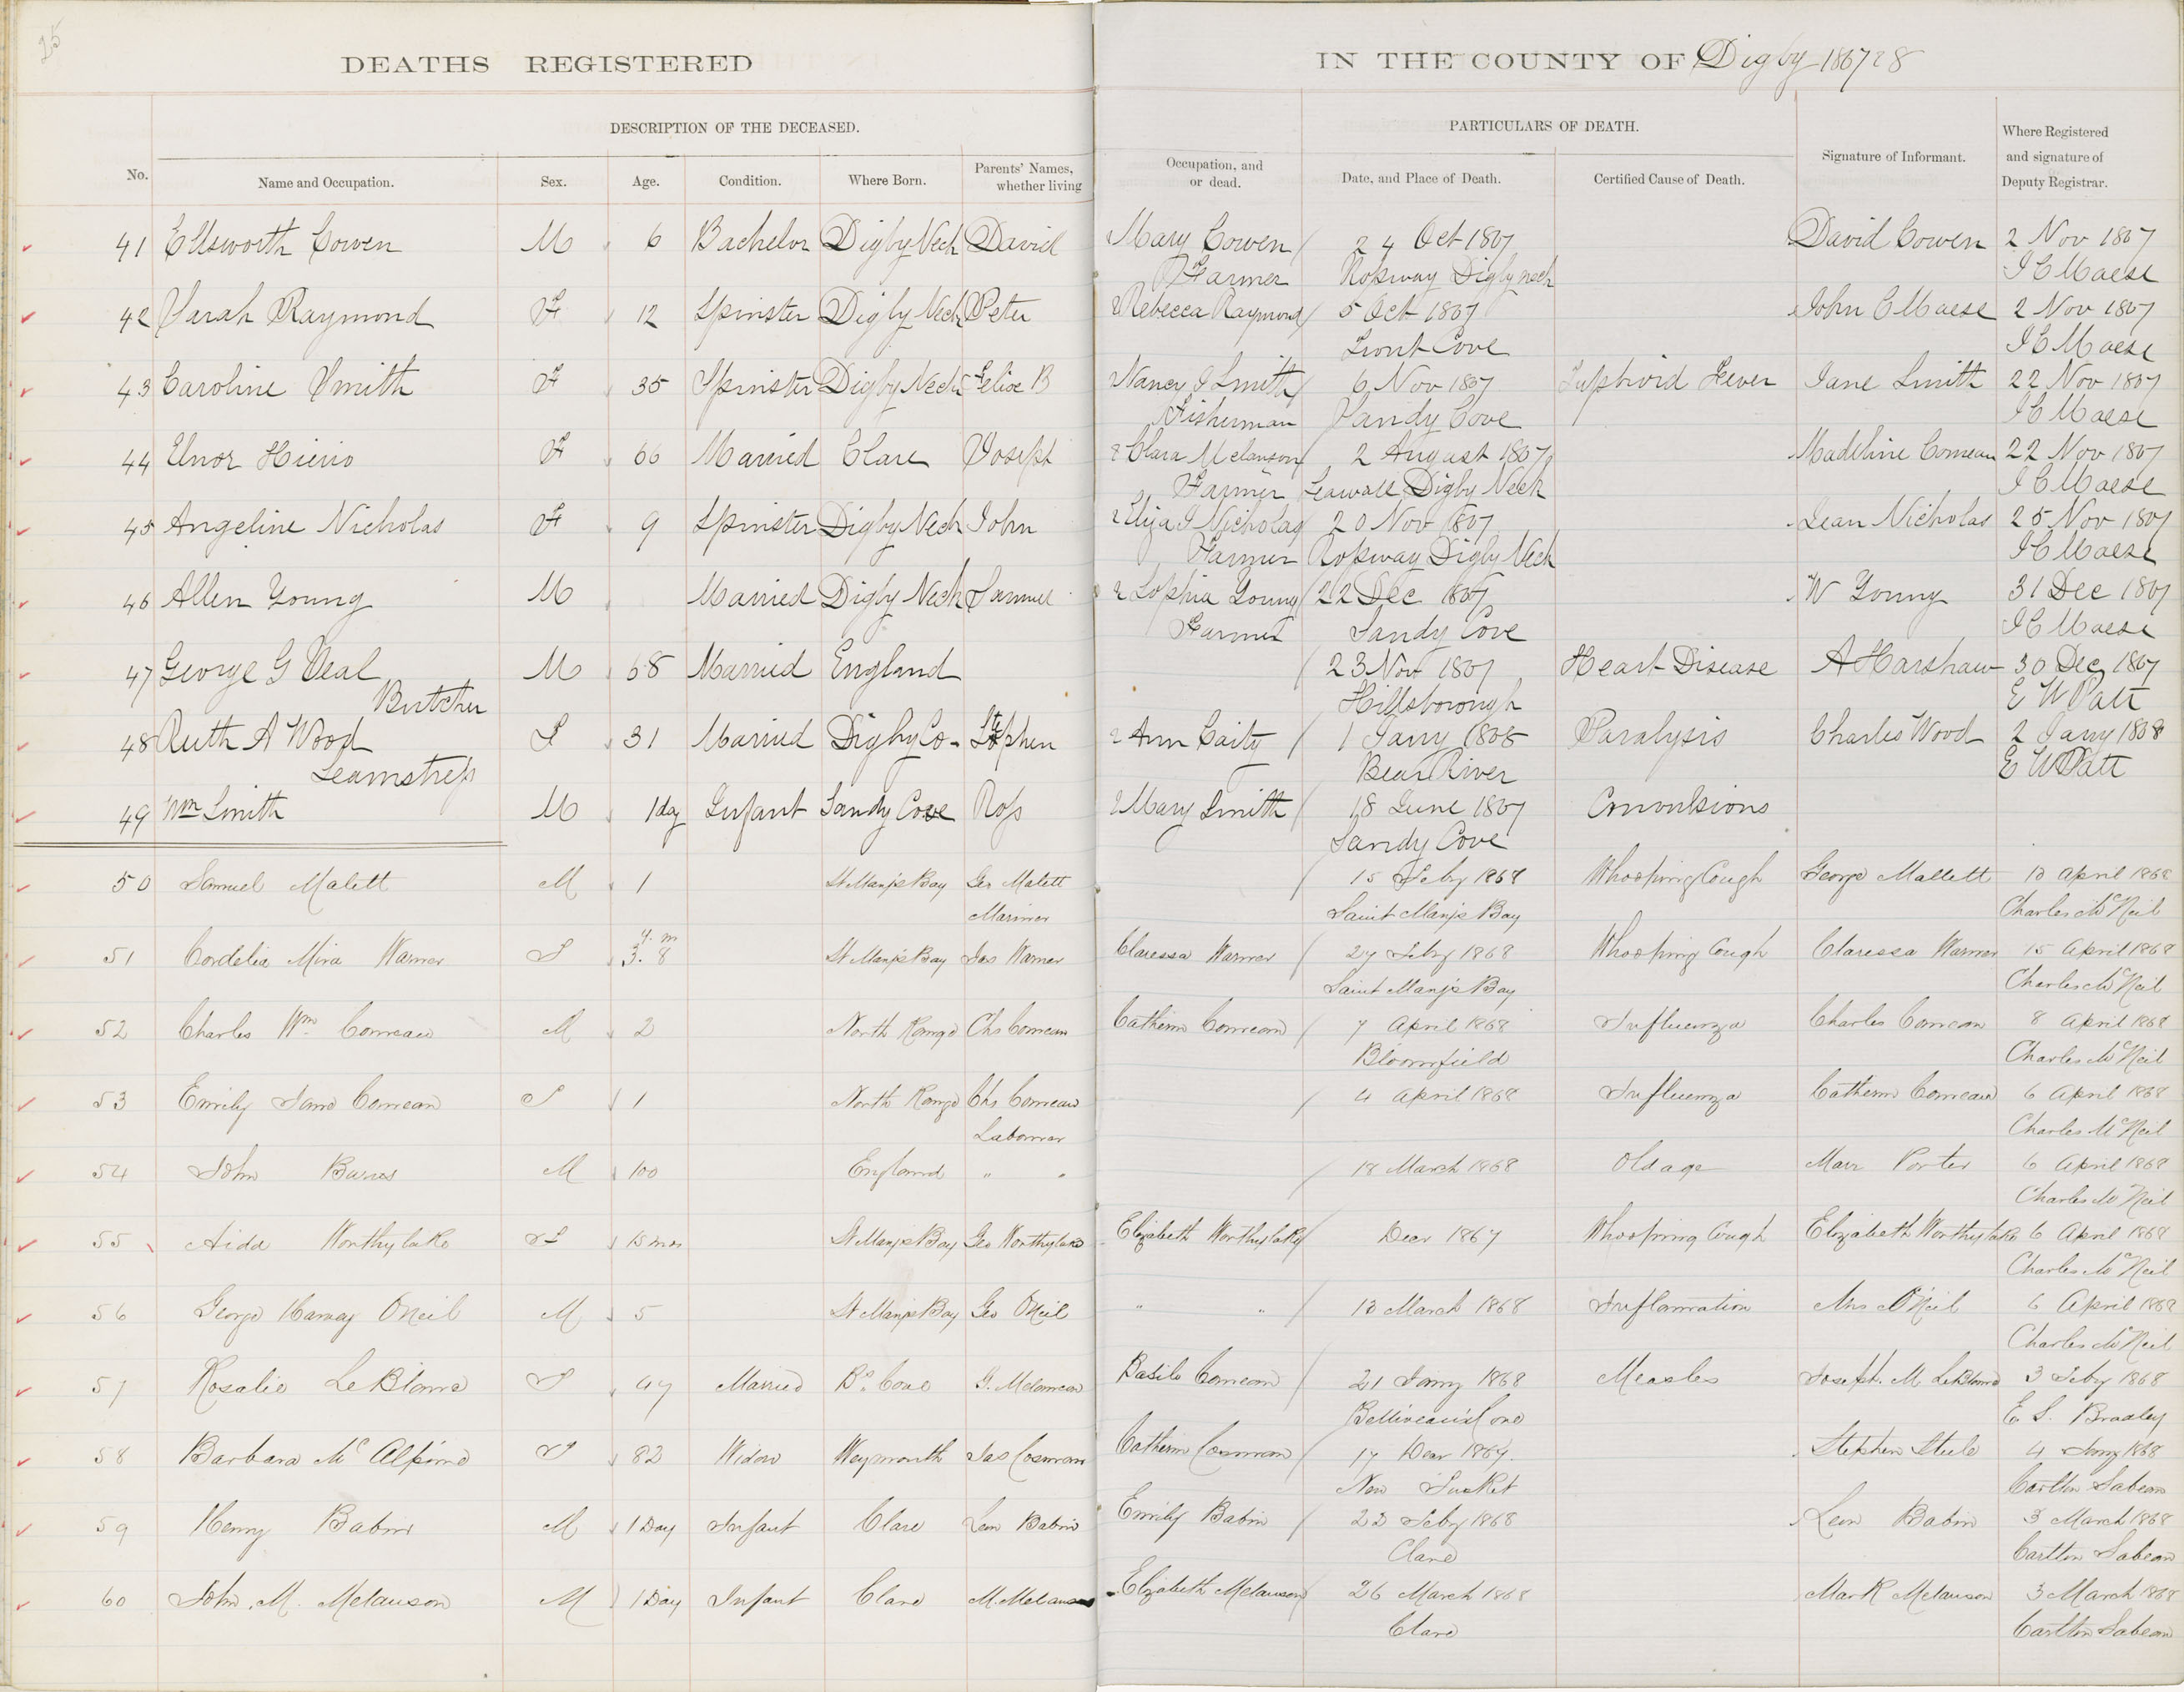 25
DEATHS REGISTERED IN THE COUNTY OF Digby 1867 & 8
DESCRIPTION OF THE DECEASED. PARTICULARS OF DEATH.
No. Name and Occupation. Sex. Age. Condition. Where Born. Parents' Names, whether living Occupation, and or dead. Date, and Place of Death. Certified Cause of Death. Signature of Informant. Where Registered and signature of Deputy Registrar.
41 Ellsworth Cowen M 6 Bachelor Digby Neck David Mary Cowen 24 Oct 1867 David Cowen 2 Nov 1867
Farmer Rossway Digby neck I C Maese
42 Sarah Raymond F 12 Spinster Digby Neck Peter & Rebecca Raymond 5 Oct 1867 John C Maese 2 Nov 1867
Trout Cove I C Maese
43 Caroline Smith F 35 Spinster Digby Neck B & Nancy J Smith 6 Nov 1867 Fever Jane Smith 22 Nov 1867
Fisherman Sandy Cove I C Maese
44 F 66 Married Clare Joseph & Clara Melanson 2 August 1867 Madeline Comeau 22 Nov 1867
Farmer Seawall Digby Neck I C Maese
45 Angeline Nicholas F 9 Spinster Digby Neck John & Eliza J Nicholas 20 Nov 1867 Nicholas 25 Nov 1867
Farmer Rossway Digby Neck I C Maese
46 Allen Young M Married Digby Neck Samuel & Sophia Young 22 Dec 1867 W Young 31 Dec 1867
Farmer Sandy Cove I C Maese
47 George G Veal M 68 Married England 23 Nov 1867 Heart Disease A Harshaw 30 Dec 1867
Butcher Hillsborough E W Patt
48 Ruth A Wood F 31 Married Digby Co. Stephen & Ann 1 Jany 1868 Paralysis Charles Wood 2 Jany 1868
Seamstress Bear River E W Patt
49 Wm Smith M 1 day Infant Sandy Cove Ross & Mary Smith 18 June 1867 Convulsions
Sandy Cove
50 Samuel Malett M 1 St Mary's Bay Geo Malett 15 Feby 1868 Whooping Cough George Mallett 10 April 1868
Mariner Saint Mary's Bay Charles McNeil
51 Cordelia Mira Warner F 3 y. 8 m St Mary's Bay Jas Warner Claressa Warner 27 Feby 1868 Whooping Cough Claressa Warner 15 April 1868
Saint Mary's Bay Charles McNeil
52 Charles Wm Comeau M 2 North Range Chs Comeau Catherin Comeau 7 April 1868 Influenza Charles Comeau 8 April 1868
Bloomfield Charles McNeil
53 Emily Jane Comeau F 1 North Range Chs Comeau 4 April 1868 Influenza Catherin Comeau 6 April 1868
Labourer Charles McNeil
54 John M 100 England " " 18 March 1868 Old age Porter 6 April 1868
Charles McNeil
55 Aida Worthylake F 15 mos St Mary's Bay Geo Worthylake Elizabeth Worthylake Decr 1867 Whooping Cough Elizabeth Worthylake 6 April 1868
Charles McNeil
56 George Harvey ONeil M 5 St Mary's Bay Geo ONeil " " 10 March 1868 Inflamation Mrs O'Neil 6 April 1868
Charles McNeil
57 Rosalie LeBlanc F 47 Married Bs. Cove G. Melancon Basile Comeau 21 Jany 1868 Measles Joseph. M LeBlanc 3 Feby 1868
Belliveau's Cove E S. Bradley
58 Barbara Mc Alpine F 82 Widow Weymouth Jas Cosman Catherin Cosman 17 Decr 1867. Stephen Steele 4 Jany 1868
New Tusket Carlton Sabean
59 Henry Babin M 1 Day Infant Clare Leon Babin Emily Babin 22 Feby 1868 Leon Babin 3 March 1868
Clare Carlton Sabean
60 John. M. Melanson M 1 Day Infant Clare M. Melanson Elizabeth Melanson 26 March 1868 Mark Melanson 3 March 1868
Clare Carlton Sabean